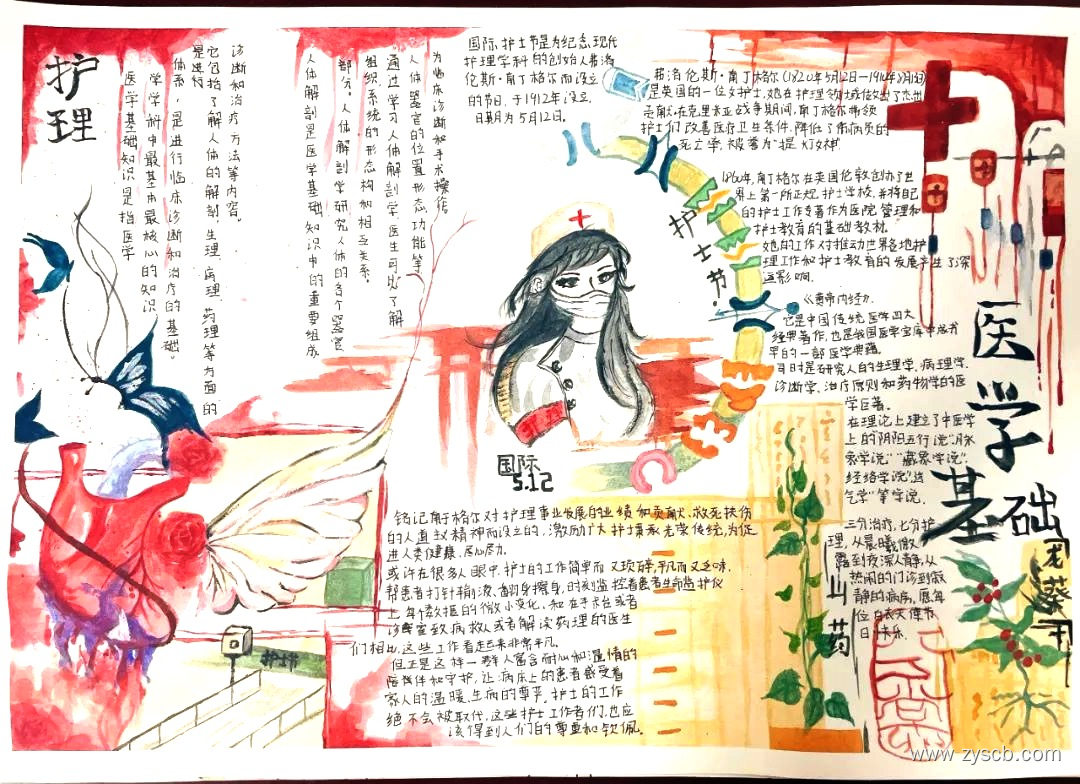 护理
诊断和治疗方法等内容。
它包括了解人体的解剖、生理、病理、药理等方面的
是进行
体系,是进行临床诊断和治疗的基础。
学学科中最基本最核心的知识
医学基础知识是指医学
为临床诊断和手术操作
人体器官的位置形态功能等
通过学习人体解剖学,医生可以了解
组织系统的形态结构和相互关系,
部分。人体解剖学研究人体的各个器官
人体解剖是医学基础知识中的重要组成
国际护士节是为纪念现代
护理学科的创始人弗洛
伦斯·南丁格尔而设立
的节日,于1912年设立,
日期为5月12日。
弗洛伦斯·南丁格尔(1820年5月12日—1910年8月13日)
是英国的一位女护士,她在护理领域做出了杰出
贡献,在克里米亚战争期间,南丁格尔带领
护士们改善医疗卫生条件,降低了伤病员的
死亡率,被誉为"提灯女神"
1860年,南丁格尔在英国伦敦创办了世
界上第一所正规护士学校,并将自己
的护士工作专著作为医院管理和
护士教育的基础教材。
她的工作对推动世界各地护
理工作和护士教育的发展产生了深
远影响
护士节!
《黄帝内经》
它是中国传统医学四大
经典著作,也是我国医学宝库中成书
早的一部医学典籍。
同时是研究人的生理学、病理学、
诊断学、治疗原则和药物学的医
学巨著。
在理论上建立了中医学
上的"阴阳五行说""脉
象学说""藏象学说"
经络学说""运
气学"等学说。
医学基础
国际
5.12
铭记南丁格尔对护理事业发展的业绩和贡献、救死扶伤
的人道主义精神而设立的,激励广大护士秉承光荣传统,为促
进人类健康,尽心尽力。
或许在很多人眼中,护士的工作简单而又琐碎,平凡而又乏味,
帮患者打针输液、翻身擦身,时刻监控着患者生命监护仪
上每个数据的微小变化,和在手术台或者
诊室里致病救人或者解读药理的医生
们相比,这些工作看起来非常平凡。
但正是这样一群人富含耐心和温情的
陪伴和守护,让病床上的患者感受着
家人的温暖,生病的尊严,护士的工作
绝不会被取代,这些护士工作者们,也应
该得到人们的尊重和钦佩。
三分治疗,七分护
理,从晨曦微
露到夜深人静,从
热闹的门诊到寂
静的病房,愿每
位白衣天使节
日快乐
护士节
山药
龙葵
www.zyscb.com